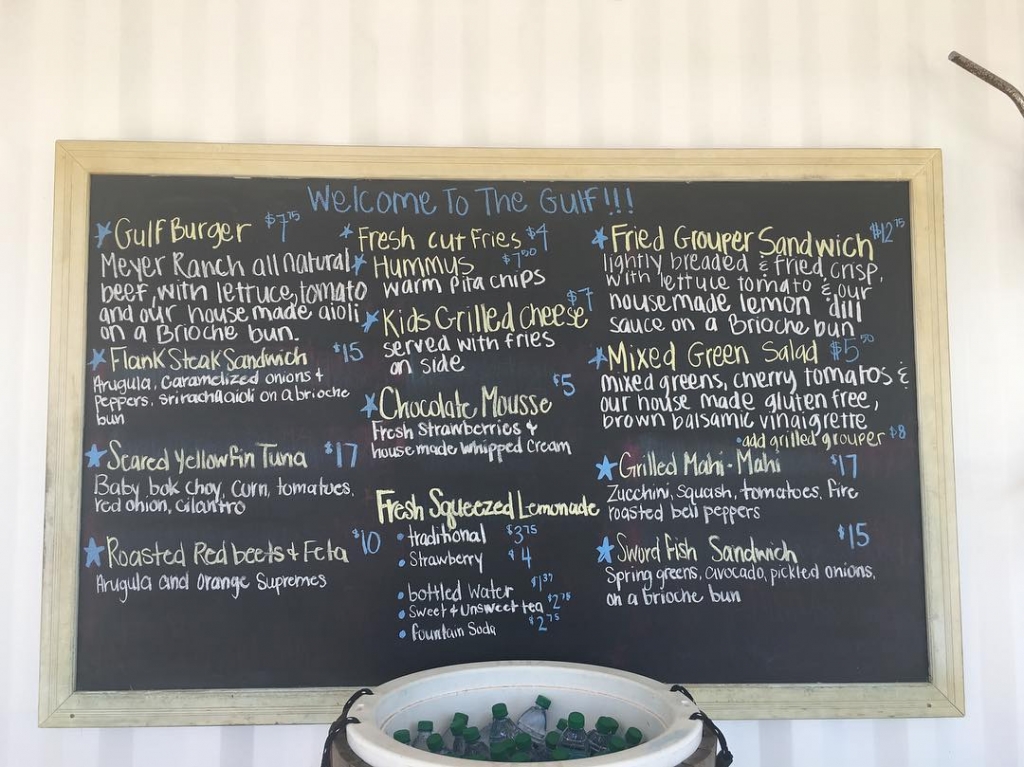 Welcome To The Gulf!!!
Gulf Burger $7.75
Meyer Ranch all natural
beef, with lettuce, tomato
and our house made aioli
on a Brioche bun.
Flank Steak Sandwich $15
Arugula, caramelized onions +
peppers, sriracha aioli on a brioche
bun
Seared Yellowfin Tuna $17
Baby bok choy, corn, tomatoes,
red onion, cilantro
Roasted Red beets + Feta $10
Arugula and orange supremes
Fresh cut fries $4
Hummus $7.50
warm pita chips
Kids Grilled cheese $7
served with fries
on side
Chocolate Mousse $5
Fresh strawberries +
house made whipped cream
Fresh Squeezed Lemonade
• traditional $3.75
• Strawberry $4
• bottled water
• Sweet + Unsweet tea $2.75
• fountain Soda $2.75
Fried Grouper Sandwich $12.75
lightly breaded & fried crisp,
with lettuce tomato & our
housemade lemon dill
sauce on a Brioche bun
Mixed Green Salad $5.50
mixed greens, cherry tomatos &
our house made gluten free,
brown balsamic vinaigrette
• add grilled grouper $8
Grilled Mahi-Mahi $17
Zucchini, squash, tomatoes, fire
roasted bell peppers
Swordfish Sandwich $15
Spring greens, avocado, pickled onions,
on a brioche bun